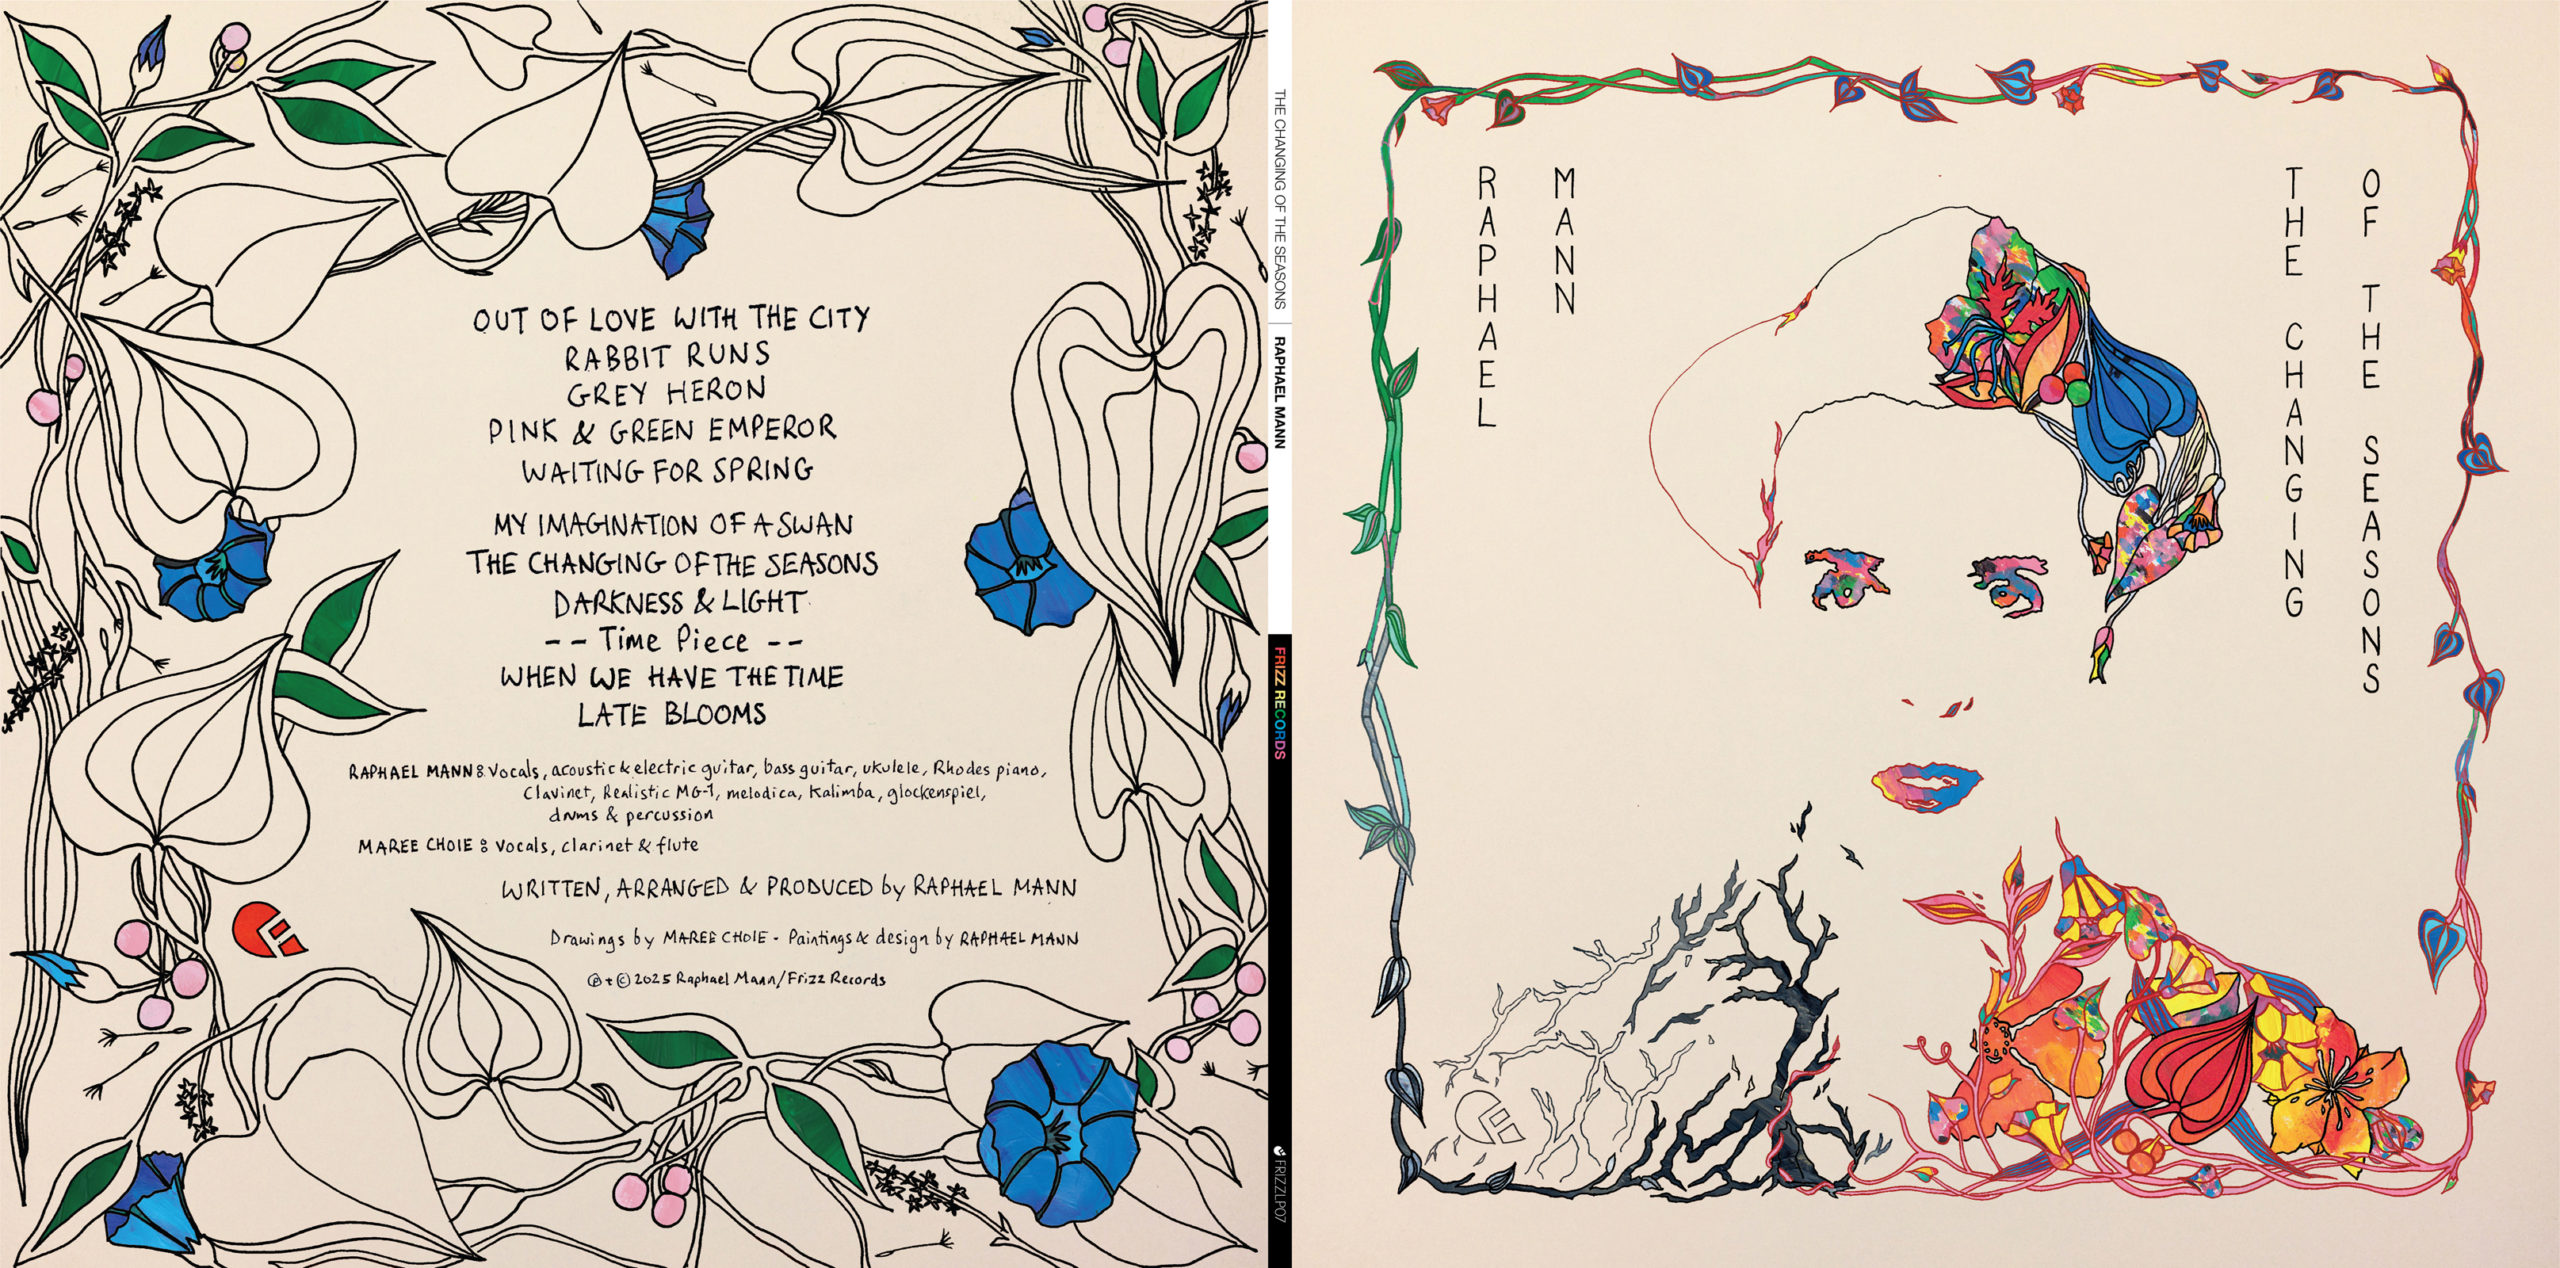 OUT OF LOVE WITH THE CITY
RABBIT RUNS
GREY HERON
PINK & GREEN EMPEROR
WAITING FOR SPRING
MY IMAGINATION OF A SWAN
THE CHANGING OF THE SEASONS
DARKNESS & LIGHT
-- Time Piece --
WHEN WE HAVE THE TIME
LATE BLOOMS
RAPHAEL MANN : Vocals, acoustic & electric guitar, bass guitar, ukulele, Rhodes piano,
Clavinet, Realistic MG-1, melodica, Kalimba, glockenspiel,
drums & percussion
MAREE CHOIE : Vocals, clarinet & flute
WRITTEN, ARRANGED & PRODUCED by RAPHAEL MANN
Drawings by MAREE CHOIE - Paintings & design by RAPHAEL MANN
℗ + © 2025 Raphael Mann/Frizz Records
THE CHANGING OF THE SEASONS
RAPHAEL MANN
FRIZZ RECORDS
FRIZZLP07
RAPHAEL
MANN
THE CHANGING
OF THE SEASONS